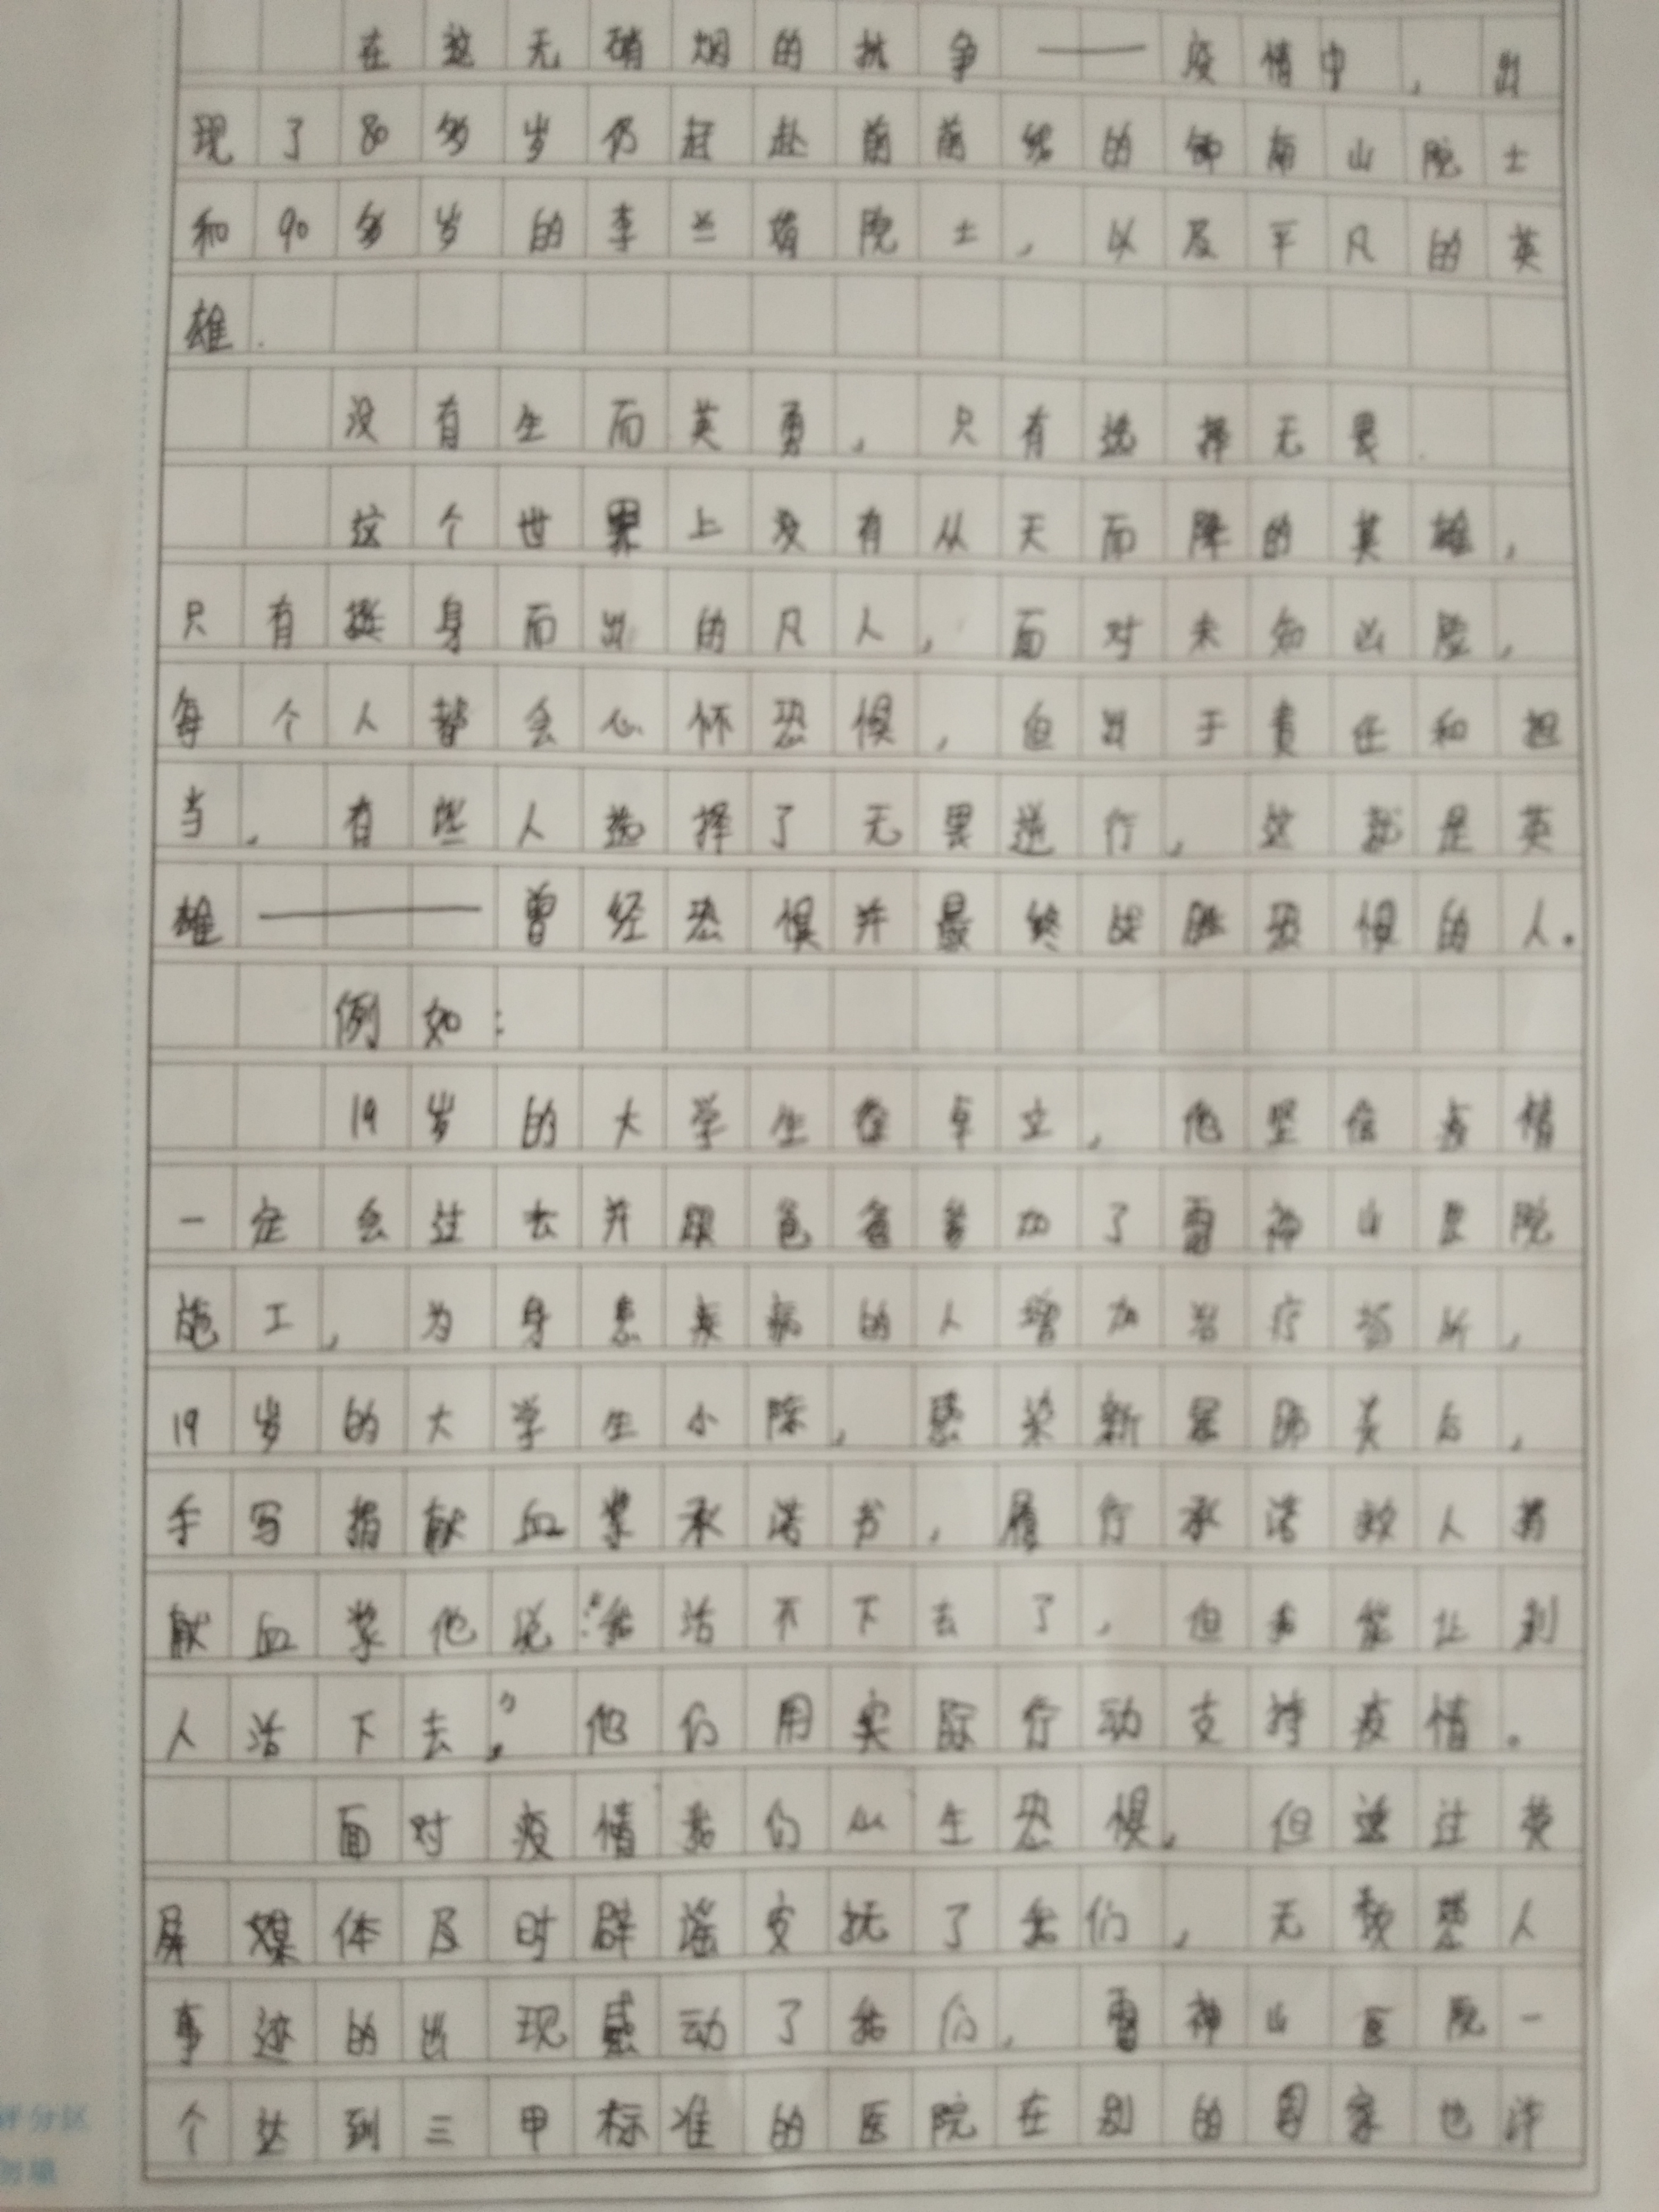 在这无硝烟的抗争——疫情中，出
现了80多岁仍赶赴前前线的钟南山院士
和90多岁的李兰娟院士，以及平凡的英
雄.
没有生而英勇，只有选择无畏.
这个世界上没有从天而降的英雄，
只有挺身而出的凡人，面对未知凶险，
每个人都会心怀恐惧，但出于责任和担
当.有些人选择了无畏逆行，这就是英
雄——曾经恐惧并最终战胜恐惧的人。
例如：
19岁的大学生徐卓立，他坚信疫情
一定会过去并跟爸爸参加了雷神山医院
施工，为身患疾病的人增加治疗场所，
19岁的大学生小陈，感染新冠肺炎后，
手写捐献血浆承诺书，履行承诺救人捐
献血浆他说：“我活不下去了，但我能让别
人活下去。”他们用实际行动支持疫情。
面对疫情我们从生恐惧，但通过荧
屏媒体及时辟谣安抚了我们，无数感人
事迹的出现感动了我们，雷神山医院一
个达到三甲标准的医院在别的国家也许